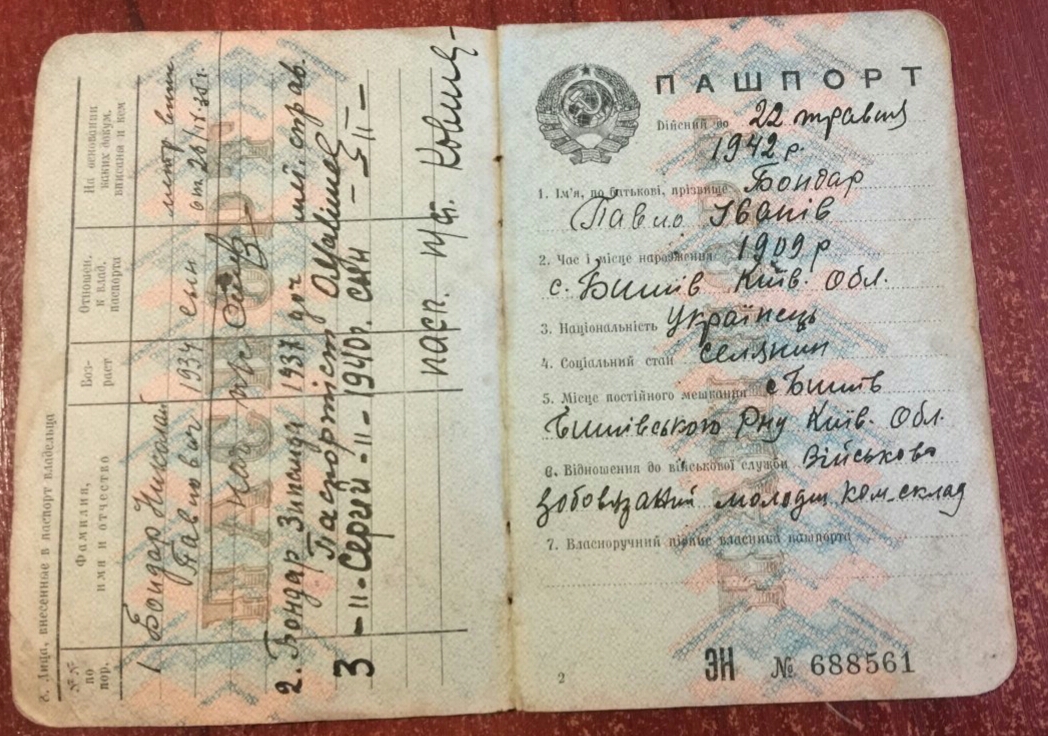 8. Лица, внесенные в паспорт владельца
№№ по пор.
Фамилия, имя и отчество
Воз- раст
Отношен. к влад. паспорта
На основании каких докум. вписаны и кем
1 Бондар Николай 1934 сын метр вып
Павлович от 26/
Нач
2. Бондар Зинаида 1937 доч мей. справ.
Паспортіст
3 -"- Сергій -"- 1940р. син -"-
пасп.
ПАШПОРТ
Дійсний до 22 травня
1942 р.
1. Ім'я, по батькові, прізвище Бондар
Павло Іванів
2. Час і місце народження 1909 р
с. Бишів Київ. Обл.
3. Національність Українець
4. Соціальний стан селянин
5. Місце постійного мешкання с Бишів
Бишівського Рну Київ. Обл.
6. Відношення до військової служби Військово
зобовязаний молодш. ком. склад
7. Власноручний підпис власника пашпорта
2
ЭН № 688561